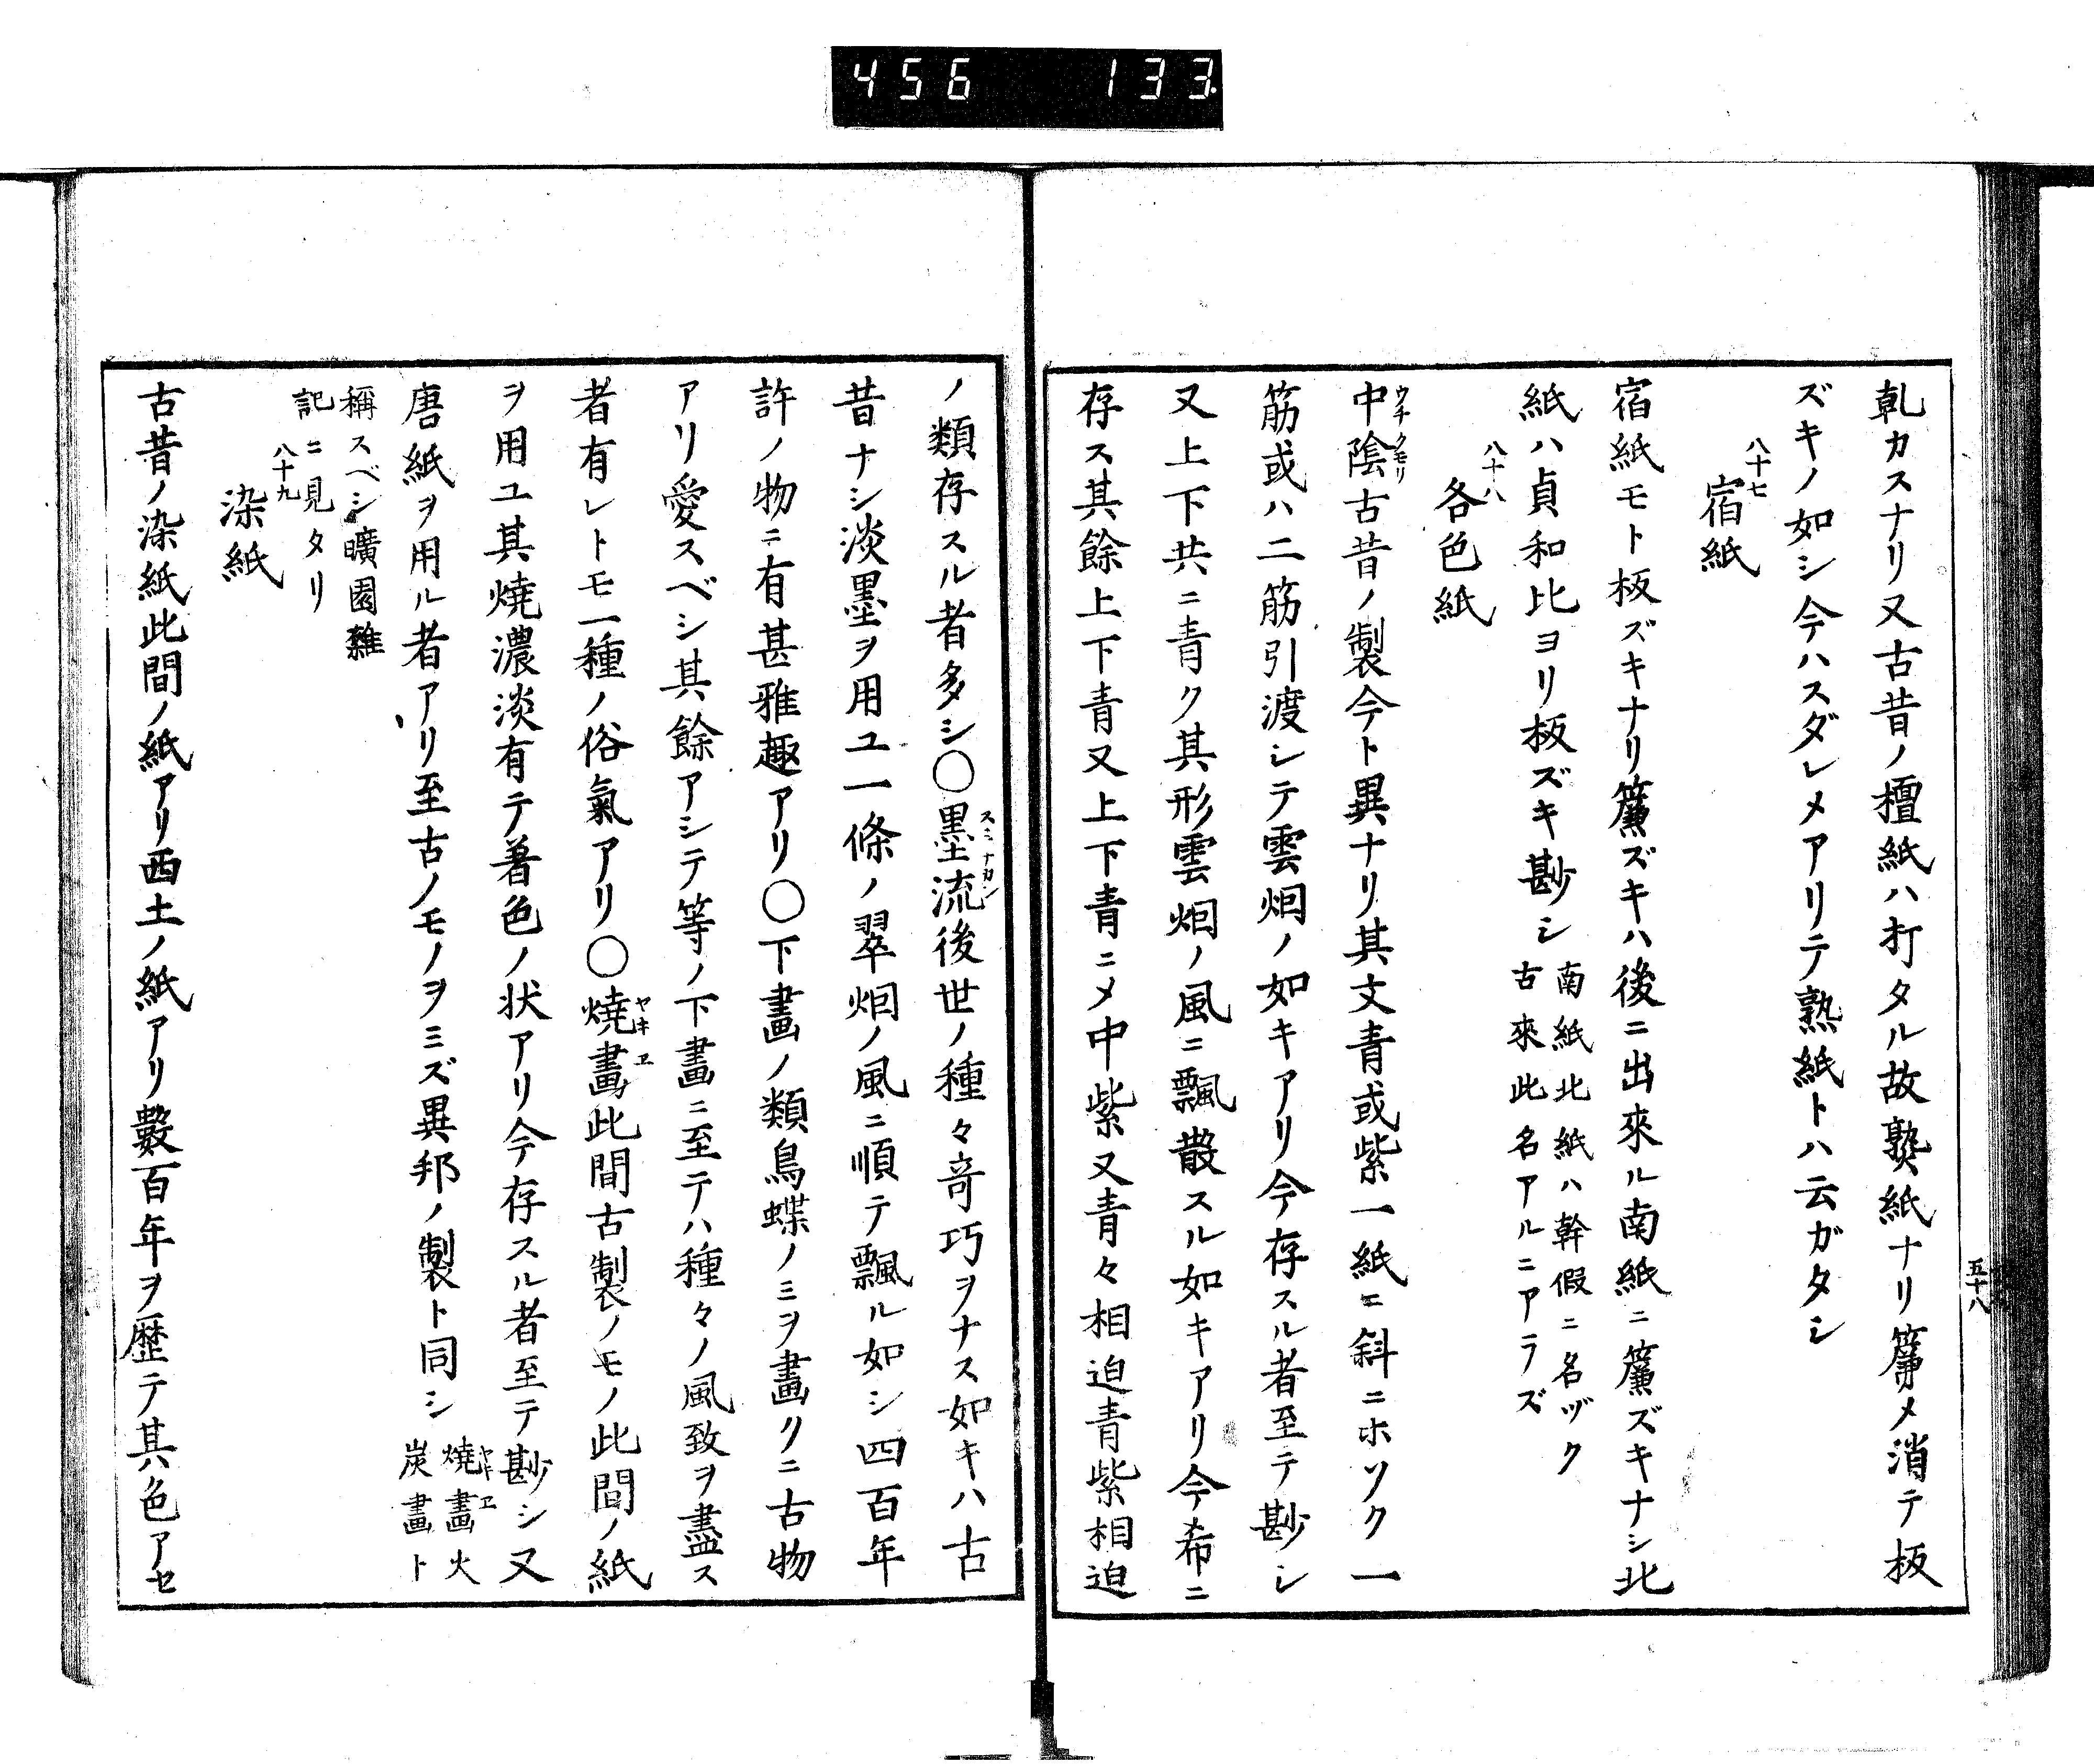 456 133
五十八
乹カスナリ又古昔ノ檀紙ハ打タル故熟紙ナリ簾メ消テ板
ズキノ如シ今ハスダレメアリテ熟紙トハ云ガタシ
八十七
宿紙
宿紙モト板ズキナリ簾ズキハ後ニ出來ル南紙ニ簾ズキナシ北
紙ハ貞和比ヨリ板ズキ尠シ
南紙北紙ハ幹假ニ名ヅク
古來此名アルニアラズ
八十八
各色紙
ウチクモリ
中陰古昔ノ製今ト異ナリ其文青或紫一紙ニ斜ニホソク一
筋或ハ二筋引渡シテ雲烟ノ如キアリ今存スル者至テ尠シ
又上下共ニ青ク其形雲烟ノ風ニ飄散スル如キアリ今希ニ
存ス其餘上下青又上下青ニメ中紫又青々相迫青紫相迫
ノ類存スル者多シ〇墨流後世ノ種々竒巧ヲナス如キハ古
スミナガシ
昔ナシ淡墨ヲ用ユ一條ノ翠烟ノ風ニ順テ飄ル如シ四百年
許ノ物ニ有甚雅趣アリ〇下畵ノ類鳥蝶ノミヲ畵クニ古物
アリ愛スベシ其餘アシテ等ノ下畵ニ至テハ種々ノ風致ヲ盡ス
者有レトモ一種ノ俗氣アリ〇燒畵此間古製ノモノ此間ノ紙
ヤキヱ
ヲ用ユ其燒濃淡有テ着色ノ状アリ今存スル者至テ尠シ又
唐紙ヲ用ル者アリ至古ノモノヲミズ異邦ノ製ト同シ
燒畵火
ヤキヱ
炭畵ト
稱スベシ曠園雜
記ニ見タリ
八十九
染紙
古昔ノ染紙此間ノ紙アリ西土ノ紙アリ數百年ヲ歴テ其色アセ